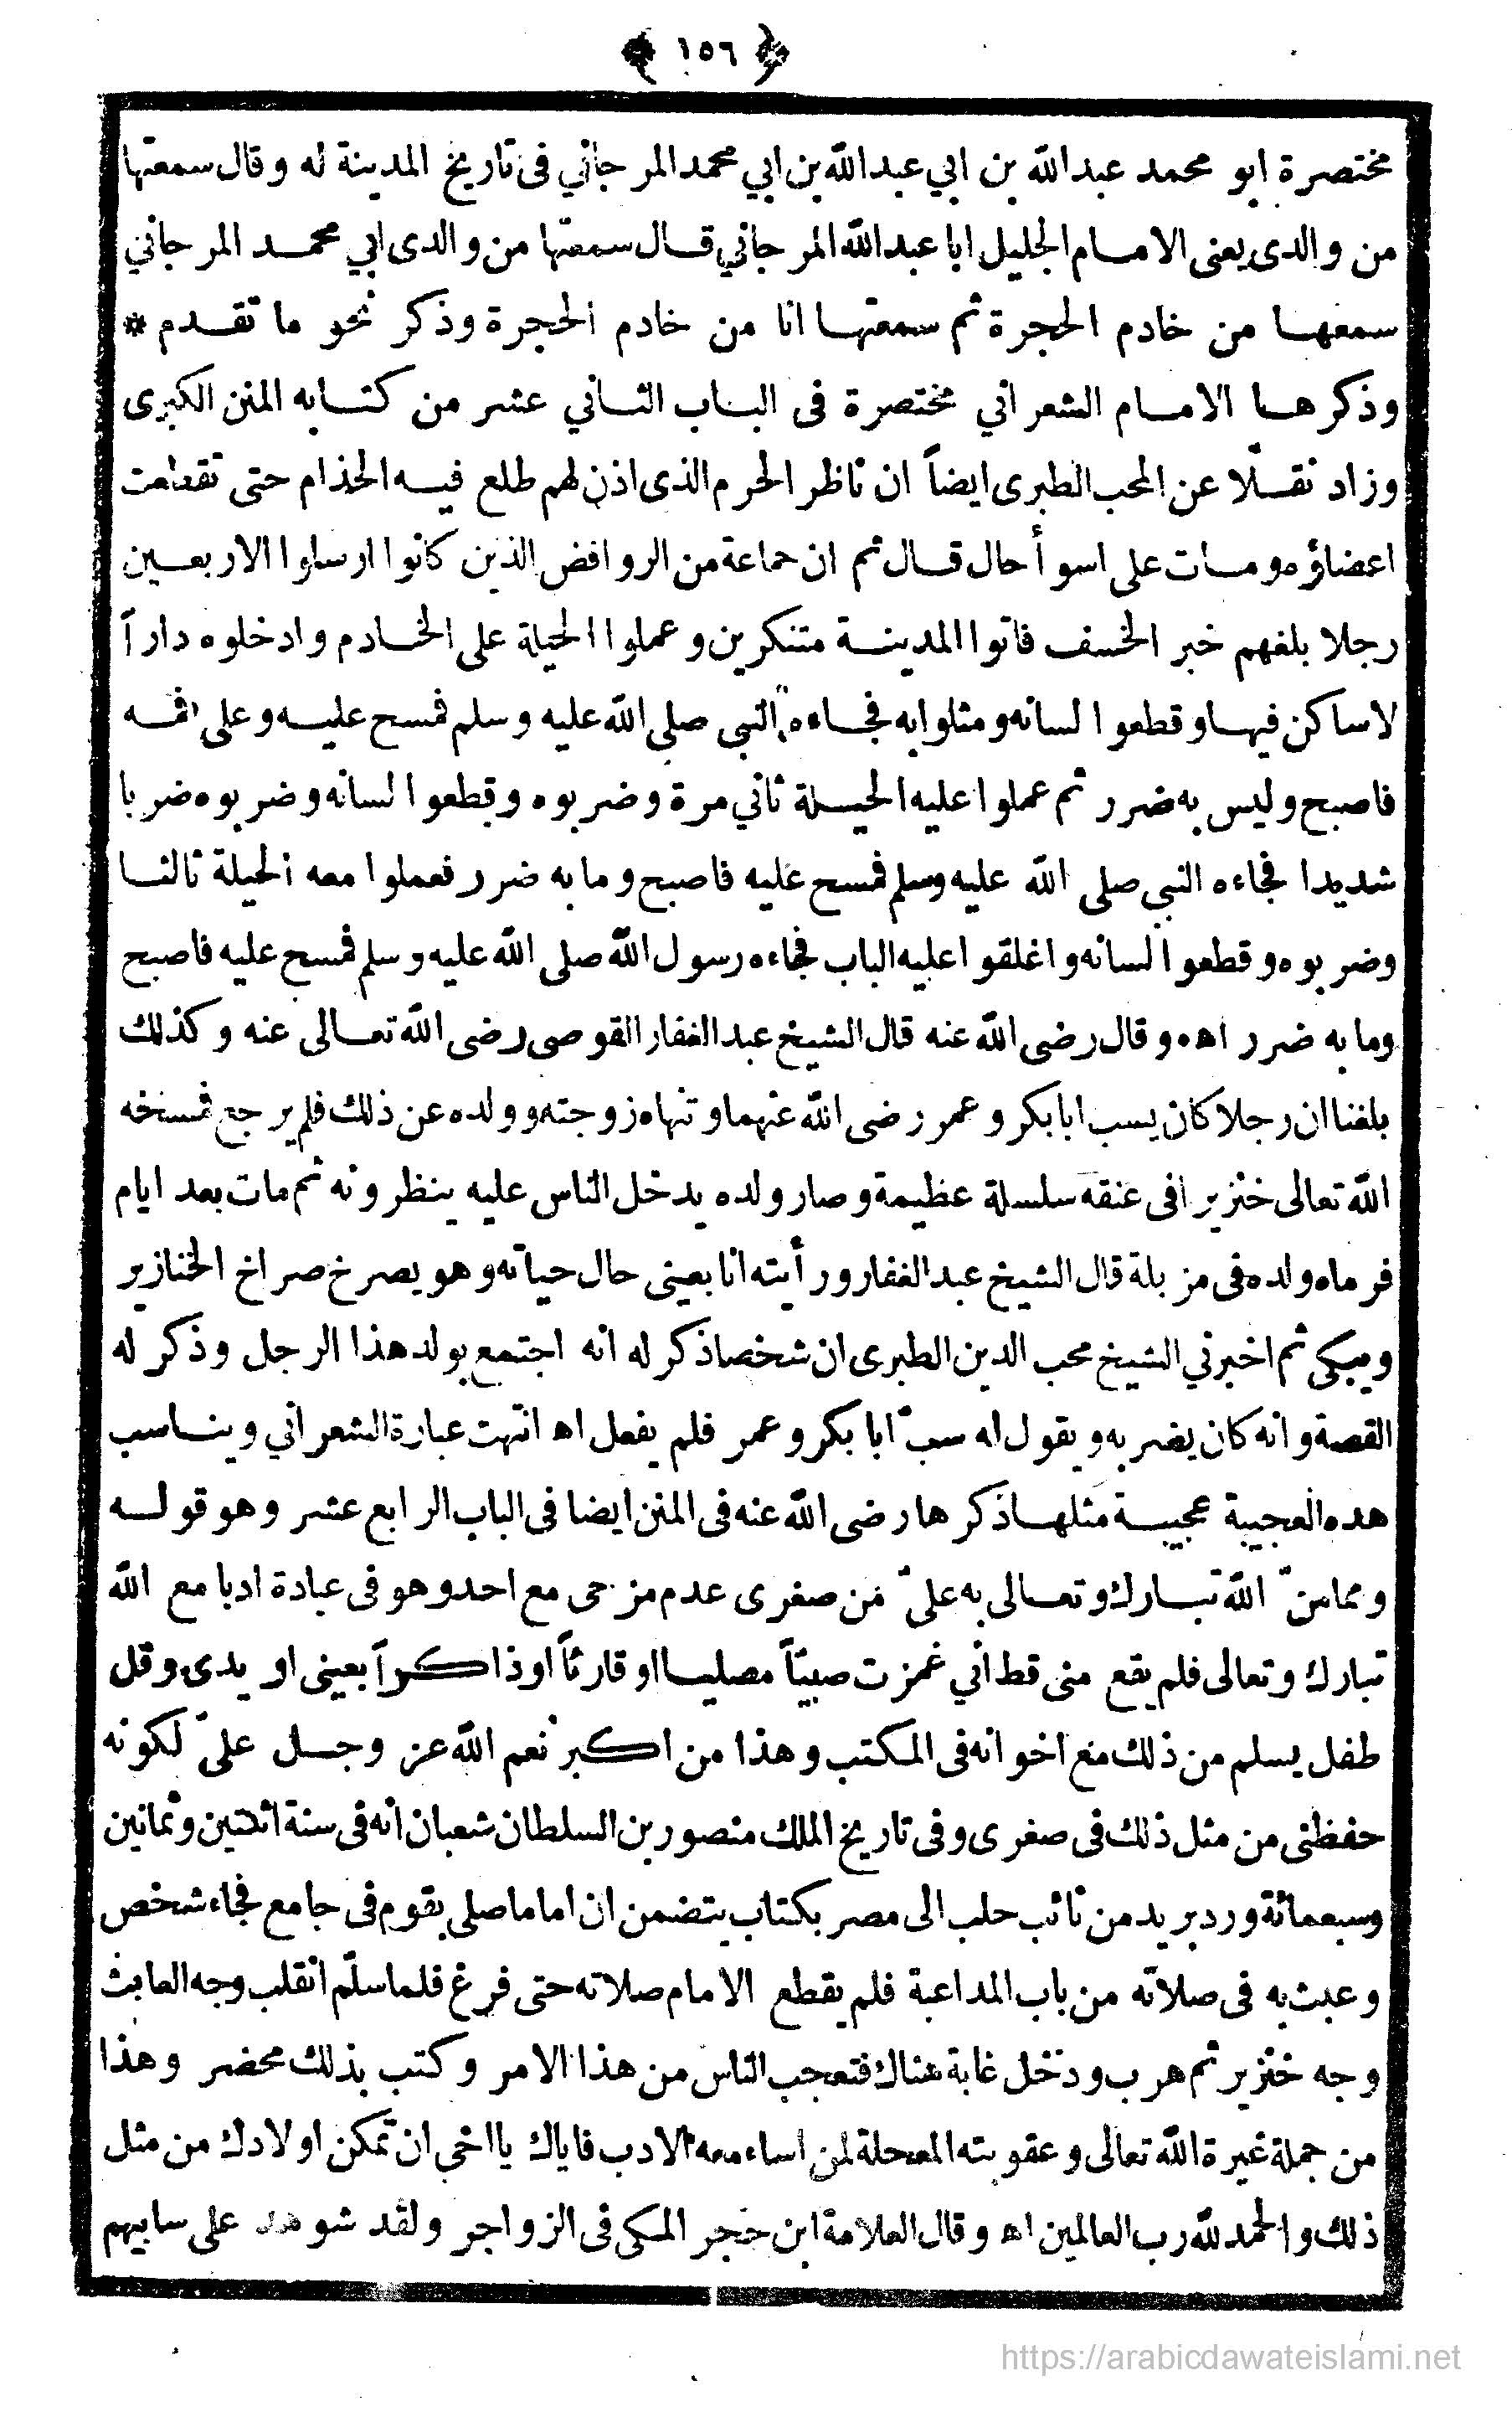 ﴿ ١٥٦ ﴾
مختصرة ابو محمد عبدالله بن ابي عبدالله بن ابي محمد المرجاني فى تاريخ المدينة له وقال سمعتها
من والدى يعنى الامام الجليل ابا عبدالله المرجاني قال سمعتها من والدى ابي محمد المرجاني
سمعها من خادم الحجرة ثم سمعتها انا من خادم الحجرة وذكر نحو ما تقدم *
وذكرها الامام الشعراني مختصرة فى الباب الثاني عشر من كتابه المنن الكبرى
وزاد نقلا عن المحب الطبرى ايضاً ان ناظر الحرم الذى اذن لهم طلع فيه الجذام حتى تقطعت
اعضاؤه ومات على اسوأ حال قال ثم ان جماعة من الروافض الذين كانوا ارسلوا الاربعين
رجلا بلغهم خبر الخسف فاتوا المدينة متنكرين وعملوا الحيلة على الخادم وادخلوه داراً
لا ساكن فيها وقطعوا لسانه ومثلوا به فجاءه النبى صلى الله عليه وسلم فمسح عليه وعلى فمه
فاصبح وليس به ضرر ثم عملوا عليه الحيلة ثاني مرة وضربوه وقطعوا لسانه وضربوه ضربا
شديدا فجاءه النبى صلى الله عليه وسلم فمسح عليه فاصبح وما به ضرر فعملوا معه الحيلة ثالثا
وضربوه وقطعوا لسانه واغلقوا عليه الباب فجاءه رسول الله صلى الله عليه وسلم فمسح عليه فاصبح
وما به ضرر اهـ وقال رضى الله عنه قال الشيخ عبدالغفار القوصى رضى الله تعالى عنه وكذلك
بلغنا ان رجلا كان يسب ابا بكر وعمر رضى الله عنهما وتنهاه زوجته وولده عن ذلك فلم يرجع فمسخه
الله تعالى خنزيرا فى عنقه سلسلة عظيمة وصار ولده يدخل الناس عليه ينظرونه ثم مات بعد ايام
فرماه ولده فى مزبلة قال الشيخ عبدالغفار ورأيته انا بعينى حال حياته وهو يصرخ صراخ الخنازير
ويبكى ثم اخبرني الشيخ محب الدين الطبرى ان شخصا ذكر له انه اجتمع بولد هذا الرجل وذكر له
القصة وانه كان يضربه ويقول له سبّ ابا بكر وعمر فلم يفعل اهـ انتهت عبارة الشعراني ويناسب
هذه العجيبة عجيبة مثلها ذكرها رضى الله عنه فى المنن ايضا فى الباب الرابع عشر وهو قوله
ومما منّ الله تبارك وتعالى به علىّ من صغرى عدم مزحى مع احد وهو فى عبادة ادبا مع الله
تبارك وتعالى فلم يقع منى قط اني غمزت صبيّاً مصليا او قارئاً او ذاكراً بعينى او يدى وقل
طفل يسلم من ذلك مع اخوانه فى المكتب وهذا من اكبر نعم الله عز وجل علىّ لكونه
حفظنى من مثل ذلك فى صغرى وفى تاريخ الملك منصور بن السلطان شعبان انه فى سنة اثنتين وثمانين
وسبعمائة ورد بريد من نائب حلب الى مصر بكتاب يتضمن ان اماما صلى بقوم فى جامع فجاء شخص
وعبث به فى صلاته من باب المداعبة فلم يقطع الامام صلاته حتى فرغ فلما سلّم انقلب وجه العابث
وجه خنزير ثم هرب ودخل غابة هناك فتعجب الناس من هذا الامر وكتب بذلك محضر وهذا
من جملة غيرة الله تعالى وعقوبته المعجلة لمن اساء معه الادب فاياك يا اخى ان تمكن اولادك من مثل
ذلك والحمد لله رب العالمين اهـ وقال العلامة ابن حجر المكى فى الزواجر ولقد شوهد على سابيهم
https://arabicdawateislami.net